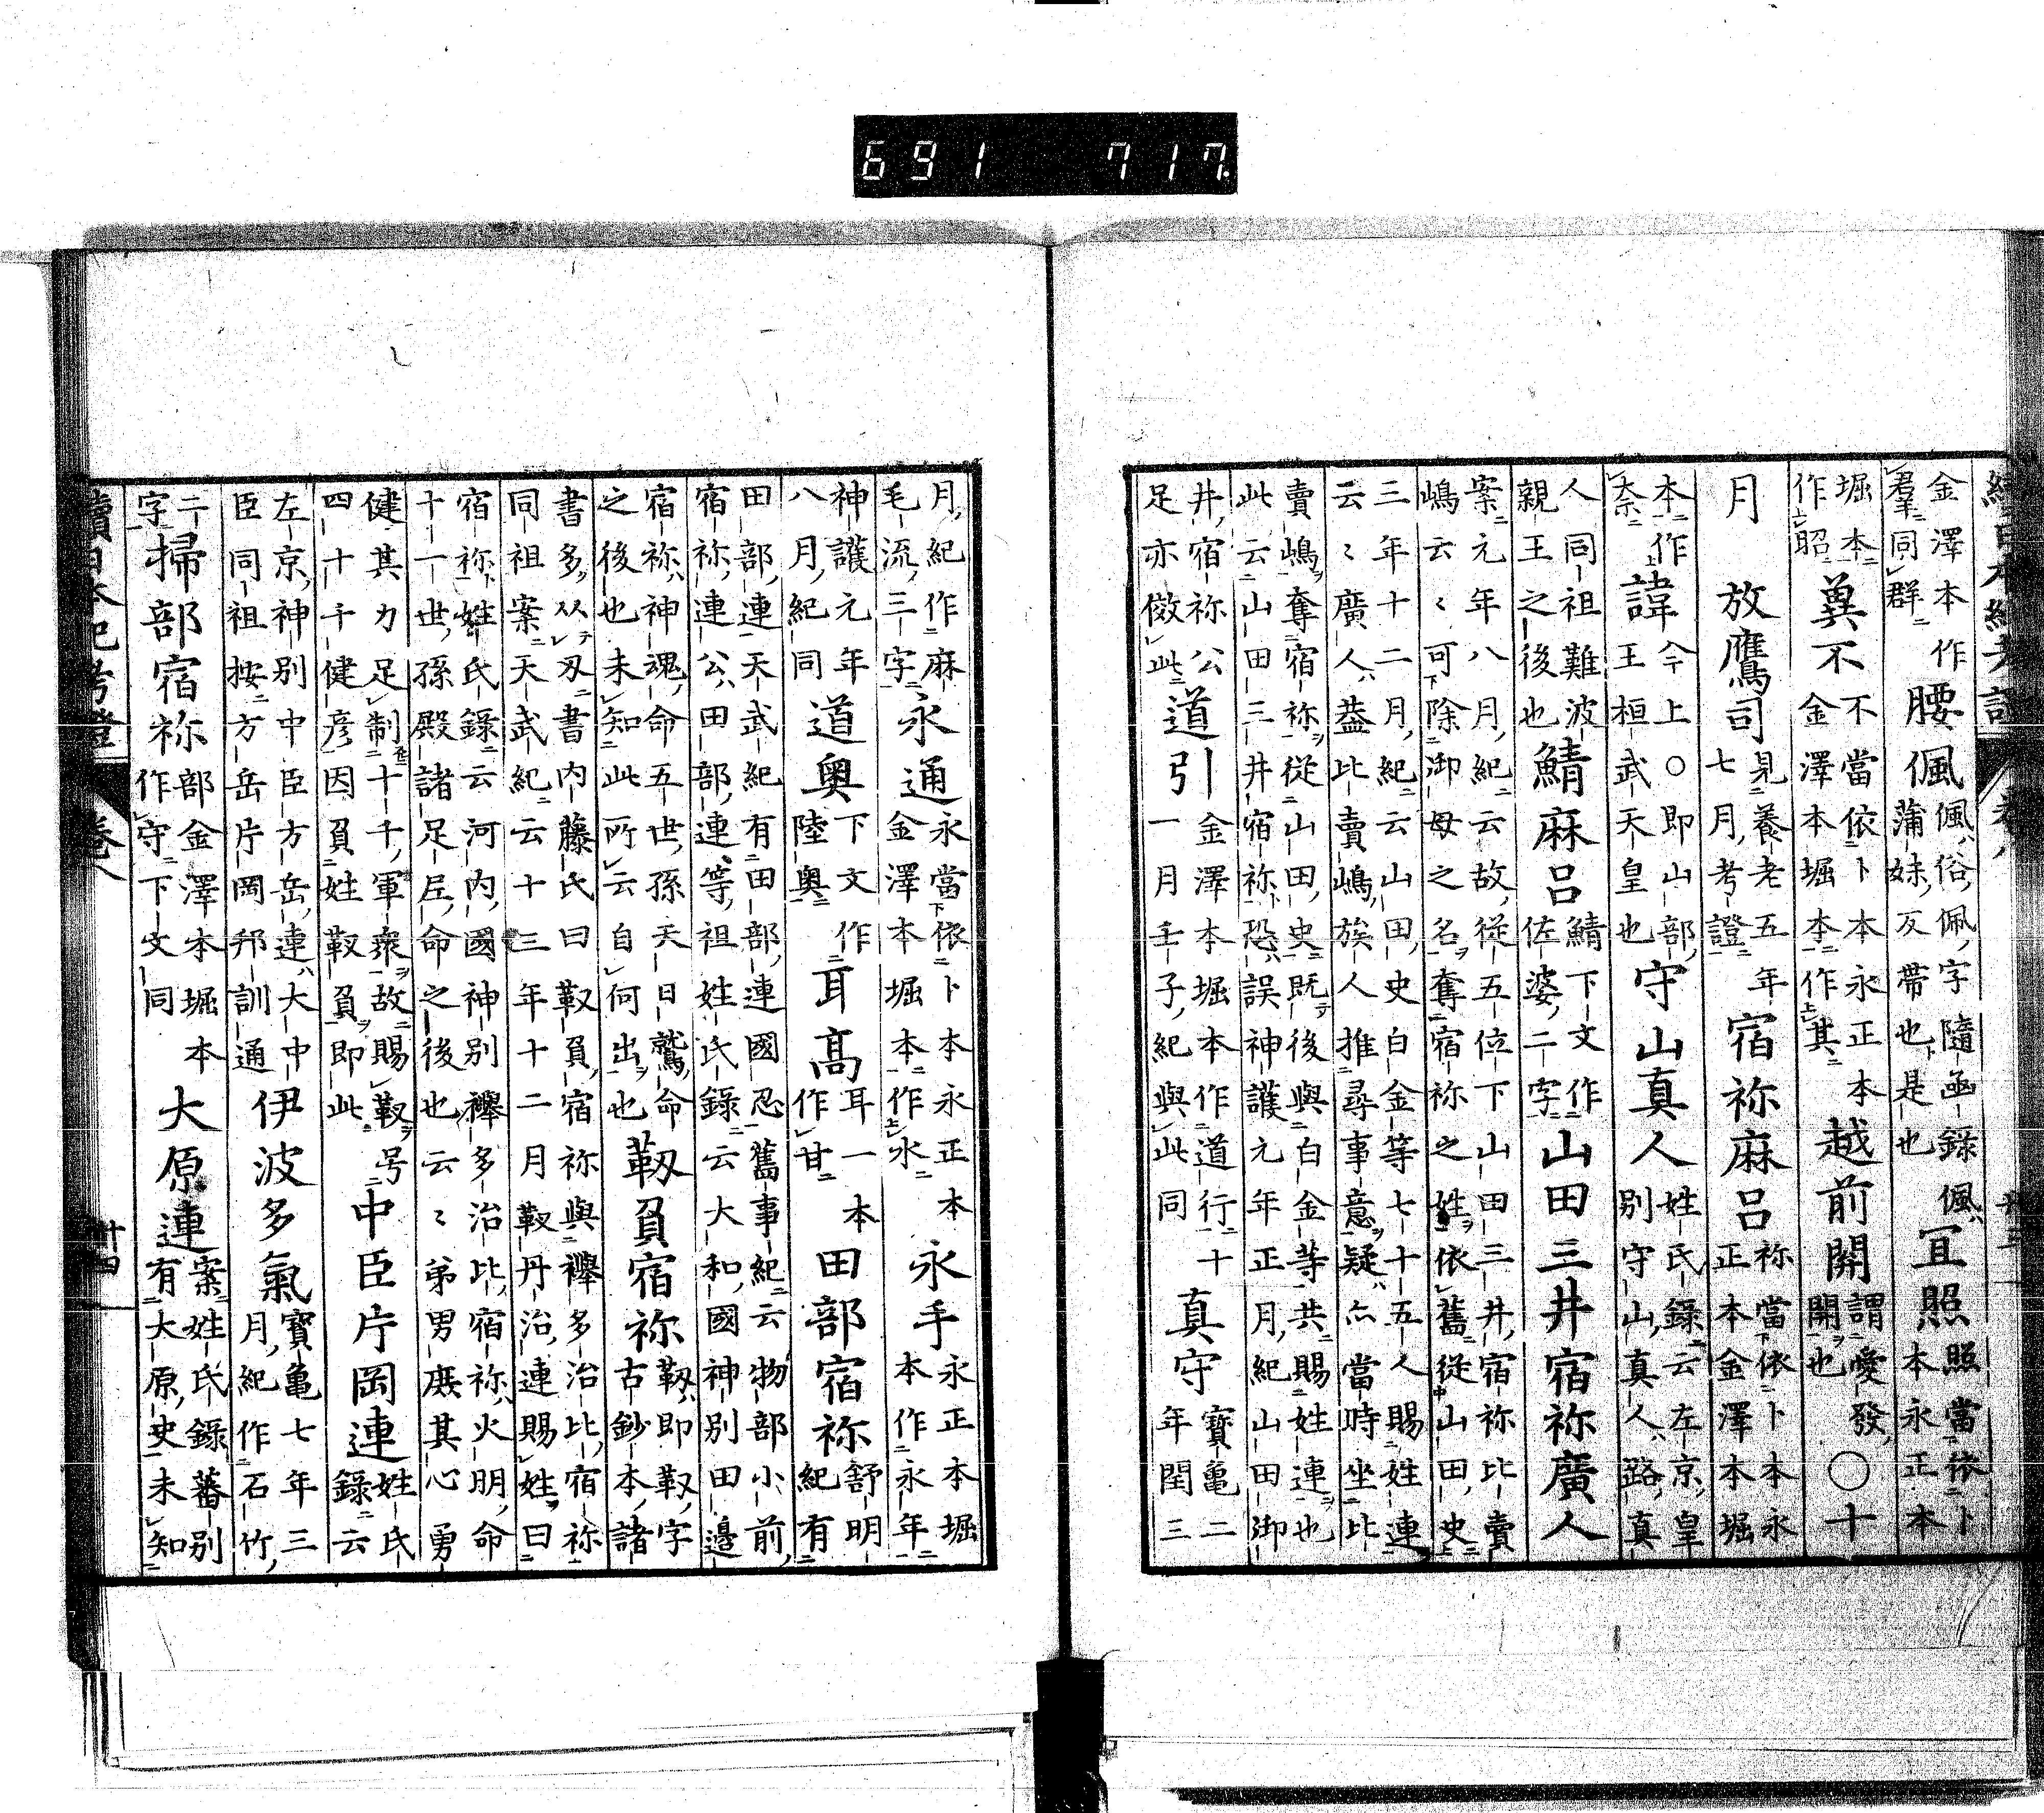 金澤本作羣同群腰偑偑俗佩字隨函錄偑蒲妹反帶也是也冝照照當依卜本永正本
堀本作昭奠不不當依卜本永正本金澤本堀本作其越前開謂愛發開也○十
月　放鷹司見養老五年七月考證宿祢麻呂祢當依卜本永正本金澤本堀
本作奈諱今上○即山部王桓武天皇也守山真人姓氏錄云左京皇別守山真人路真
人同祖難波親王之後也鯖麻呂鯖下文作佐婆二字山田三井宿祢廣人
案元年八月紀云故從五位下山田三井宿祢比賣嶋云〻可除御母之名奪宿祢之姓依舊從山田史
三年十二月紀云山田史白金等七十五人賜姓連云〻廣人葢比賣嶋族人推尋事意疑亦當時坐比
賣嶋奪宿祢從山田史既後與白金等共賜姓連也此云山田三井宿祢恐誤神護元年正月紀山田御
井宿祢公足亦倣此道引金澤本堀本作道行十一月壬子紀與此同真守寳亀二年閏三
月紀作麻毛流三字永通永當依卜本永正本金澤本堀本作水永手永正本堀本作永年
神護元年八月紀同道奧下文作陸奧耳髙耳一本作甘田部宿祢舒明紀有
田部連天武紀有田部連國忍舊事紀云物部小前宿祢連公田部連等祖姓氏錄云大和國神別田邉
宿祢神魂命五世孫天日鷲命之後也未知此所云自何出也靱負宿祢靱即靫字古鈔本諸
書多从刄書内藤氏曰靫負宿祢與襷多治比宿祢同祖案天武紀云十三年十二月靫丹治連賜姓曰
宿祢姓氏錄云河内國神別襷多治比宿祢火明命十一世孫殿諸足尼命之後也云〻弟男庶其心勇
健其力足制十千軍衆故賜靫号四十千健彦因負姓靫負即此中臣片岡連姓氏錄云
左京神別中臣方岳連大中臣同祖按方岳片岡邦訓通伊波多氣寳亀七年三月紀作石竹
二字掃部宿祢部金澤本堀本作守下文同大原連案姓氏錄蕃別有大原史未知
續日本紀考證　卷八　卅四